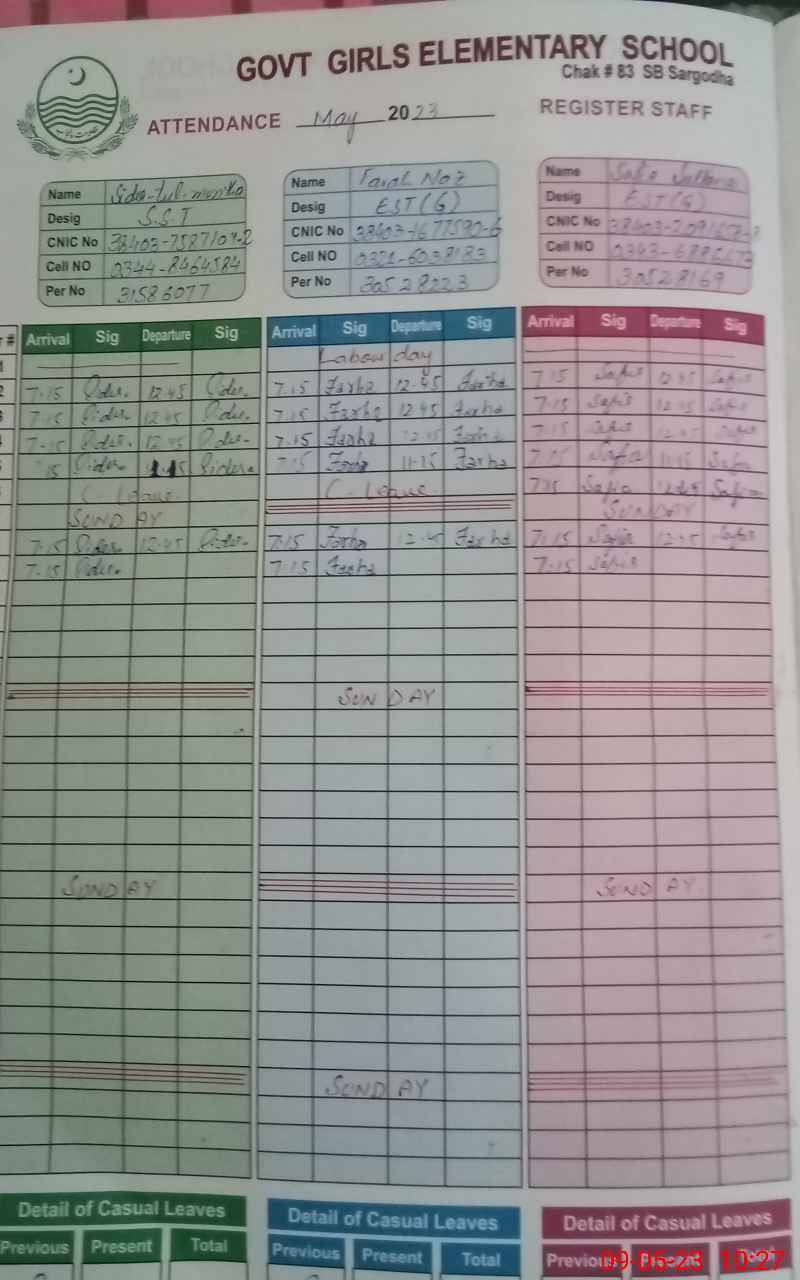 GOVT GIRLS ELEMENTARY SCHOOL
Chak # 83 SB Sargodha
ATTENDANCE May 2023 REGISTER STAFF
Name Sidra-tul-muntha
Desig S.S.T
CNIC No 38403-7587104-2
Cell NO 0344-8464584
Per No 31586077
Name Farah Naz
Desig EST(G)
CNIC No 38403-1677590-6
Cell NO
Per No 30528223
Name
Desig EST(G)
CNIC No
Cell NO
Per No 30528169
Arrival Sig Departure Sig Arrival Sig Departure Sig Arrival Sig Departure Sig
Labour day
7.15 Sidra. 12.45 Sidra. 7.15 Farha 12.45 Farha 7.15 Safia 12.45 Safia
7.15 Sidra. 12.45 Sidra. 7.15 Farha 12.45 Farha 7.15 Safia 12.45 Safia
7.15 Sidra. 12.45 Sidra. 7.15 Farha 12.45 Farha 7.15 Safia 12.45 Safia
7.15 Sidra. Sidra. 7.15 Farha 11.15 Farha 7.15 Safia 11.15 Safia
C-Leave. C-Leave. 7.15 Safia Safia
SUNDAY SUNDAY
7.15 Sidra 12.45 Sidra. 7.15 Farha 12.45 Farha 7.15 Safia 12.45 Safia
7.15 Sidra. 7.15 Farha 7.15 Safia
SUNDAY
SUNDAY SUNDAY
SUNDAY
Detail of Casual Leaves Detail of Casual Leaves Detail of Casual Leaves
Previous Present Total Previous Present Total Previous Present Total
09-05-23 10:27